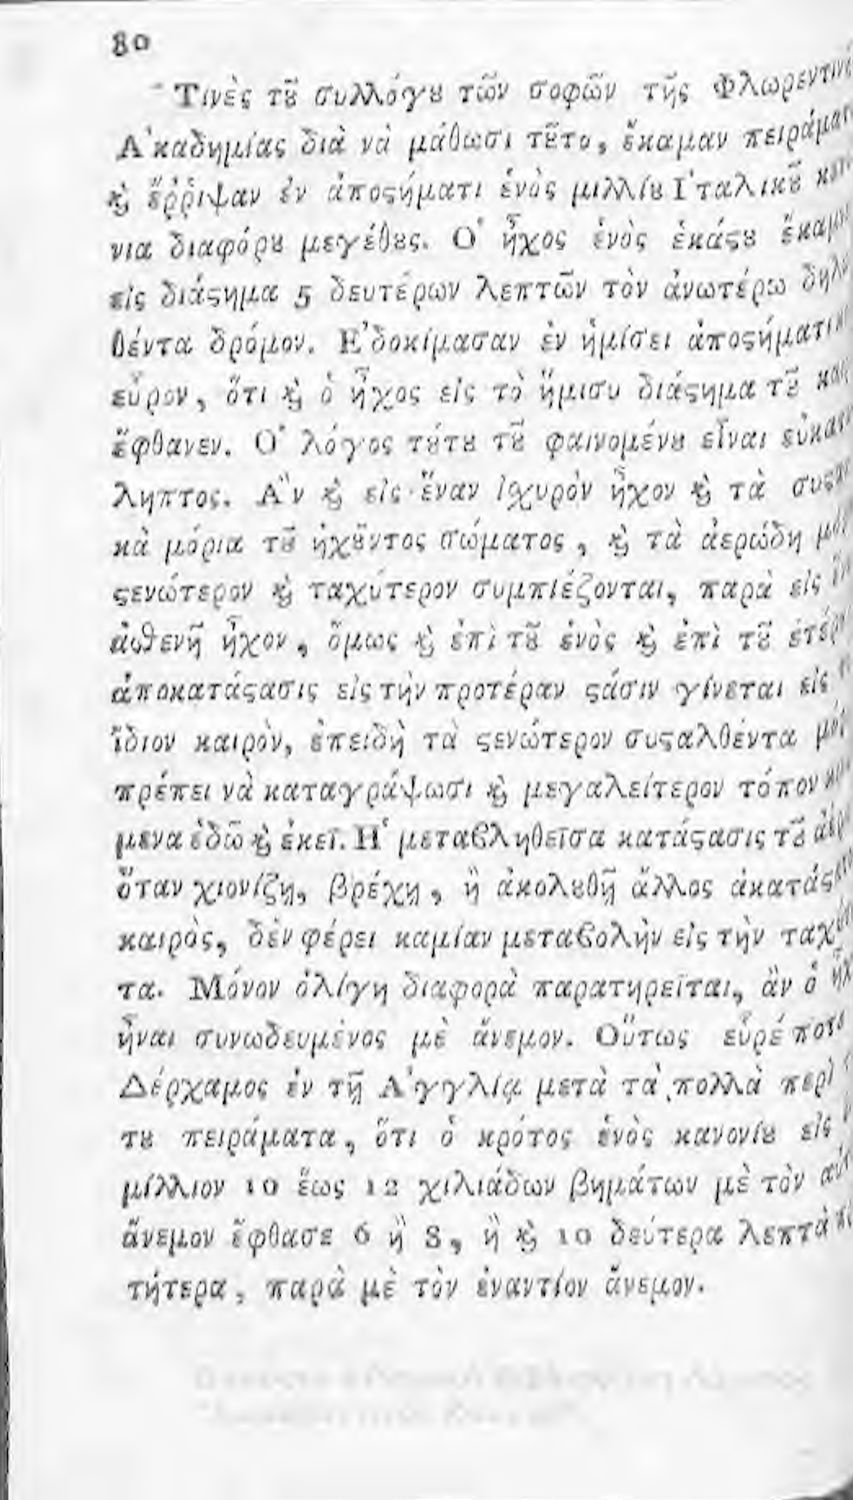 80
Τινὲς τȣ͂ συλλόγȣ τῶν σοφῶν τῆς
Ἀκαδημίας διὰ νὰ μάθωσι τȣ͂το, ἔκαμαν
ϗ ἔῤῥιψαν ἐν ἀποϛήματι ἑνὸς μιλλίȣ Ἰταλικȣ͂
νια διαφόρȣ μεγέθȣς. Ὁ ἦχος ἑνὸς ἑκάϛȣ
εἰς διάϛημα 5 δευτέρων λεπτῶν τὸν ἀνωτέρω
θέντα δρόμον. Ἐδοκίμασαν ἐν ἡμίσει
εὗρον, ὅτι ϗ ὁ ἦχος εἰς τὸ ἥμισυ διάϛημα τȣ͂
ἔφθανεν. Ὁ λόγος τȣ́τȣ τȣ͂ φαινομένȣ εἶναι
ληπτος. Ἂν ϗ εἰς ἕναν ἰσχυρὸν ἦχον ϗ τὰ
κὰ μόρια τȣ͂ ἠχȣ͂ντος σώματος, ϗ τὰ ἀερώδη
ϛενώτερον ϗ ταχύτερον συμπιέζονται, παρὰ εἰς
ἀσθενῆ ἦχον, ὅμως ϗ ἐπὶ τȣ͂ ἑνὸς ϗ ἐπὶ τȣ͂
ἀποκατάϛασις εἰς τὴν προτέραν ϛάσιν γίνεται εἰς
ἴδιον καιρὸν, ἐπειδὴ τὰ ϛενώτερον συϛαλθέντα
πρέπει νὰ καταγράψωσι ϗ μεγαλείτερον τόπον
μενα ἐδῶ ϗ ἐκεῖ. Ἡ μεταβληθεῖσα κατάϛασις τȣ͂
ὅταν χιονίζῃ, βρέχῃ, ἢ ἀκολȣθῇ ἄλλος
καιρὸς, δὲν φέρει καμίαν μεταβολὴν εἰς τὴν
τα. Μόνον ὀλίγη διαφορὰ παρατηρεῖται, ἂν ὁ
ἦναι συνωδευμένος μὲ ἄνεμον. Οὕτως εὗρέ
Δέρχαμος ἐν τῇ Ἀγγλίᾳ μετὰ τὰ πολλὰ περὶ
τȣ πειράματα, ὅτι ὁ κρότος ἑνὸς κανονίȣ εἰς
μίλλιον 10 ἕως 12 χιλιάδων βημάτων μὲ τὸν
ἄνεμον ἔφθασε 6 ἢ 8, ἢ ϗ 10 δεύτερα λεπτὰ
τήτερα, παρὰ μὲ τὸν ἐναντίον ἄνεμον.